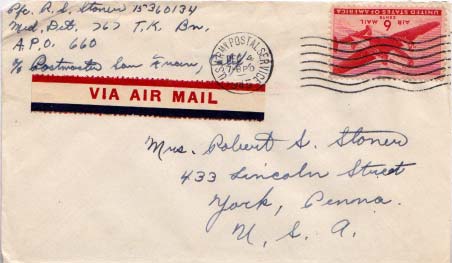 Pfc. R. S. Stoner 15360134
Med. Det. 767 T.K. Bn.
A.P.O. 660
c/o Postmaster San Fran,
U.S. ARMY POSTAL SERVICE
DEC
UNITED STATES OF AMERICA
AIR MAIL
6 CENTS
VIA AIR MAIL
Mrs. Robert S. Stoner
433 Lincoln Street
York, Penna
U. S. A.